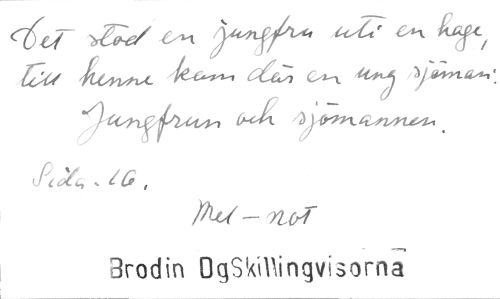 Det stod en jungfru uti en hage,
till henne kom där en ung sjöman:
Jungfrun och sjömannen.
Sida. 16.
Mel - not
Brodin DgSkillingvisorna